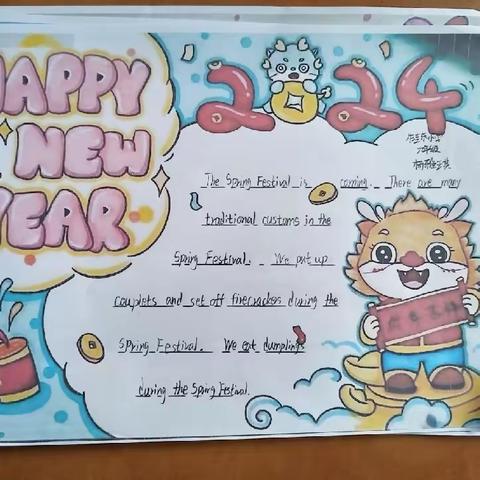 HAPPY
NEW
YEAR
2024
The Spring Festival is coming. There are many
traditional customs in the
Spring Festival. We put up
couplets and set off firecrackers during the
Spring Festival. We eat dumplings
during the Spring Festival.